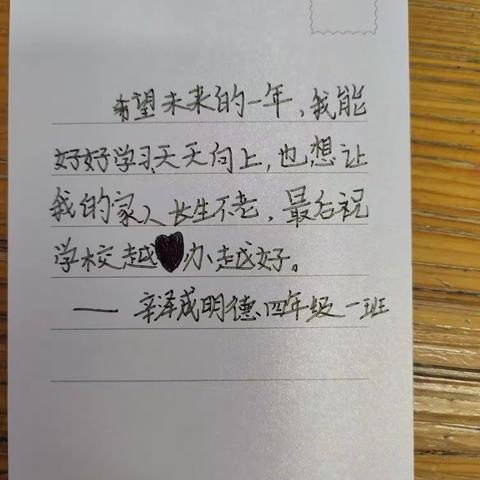 希望未来的一年、我能
好好学习天天向上，也想让
我的家人长生不老，最后祝
学校越办越好。
—— 辛泽成明德四年级一班